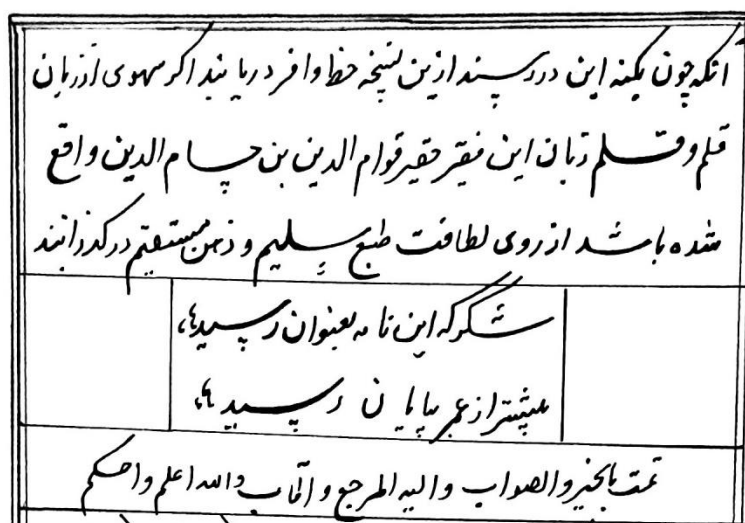 آنکه چون بکنه این در رسند ازین نسخه حظ وافر دریابند اگر سهوی از زبان
قلم و قلم زبان این فقیر حقیر قوام الدین بن حسام الدین واقع
شده باشد از روی لطافت طبع سلیم و ذهن مستقیم درگذرانند
شکر که این نامه بعنوان رسید
پیشتر از عمر بپایان رسید
تمت بالخیر والصواب والیه المرجع والمآب والله اعلم واحکم